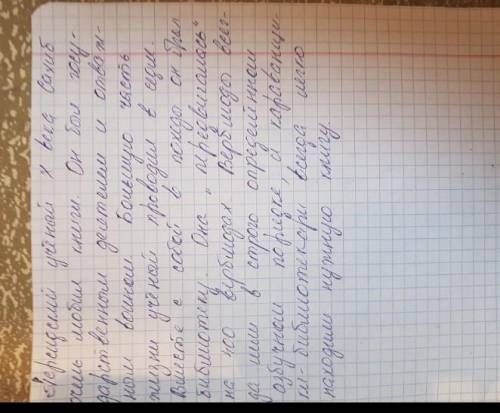 Персидский учёный X века Сахиб
очень любил книги. Он был госу-
дарственным деятелем и отваж-
ным воином. Большую часть
жизни учёный проводил в седле.
Вместе с собой в походы он брал
библиотеку. Она "передвигалась"
на 400 верблюдах. Верблюды всег-
да шли в строго определённом
азбучном порядке, и караванщи-
ки-библиотекари всегда легко
находили нужную книгу.